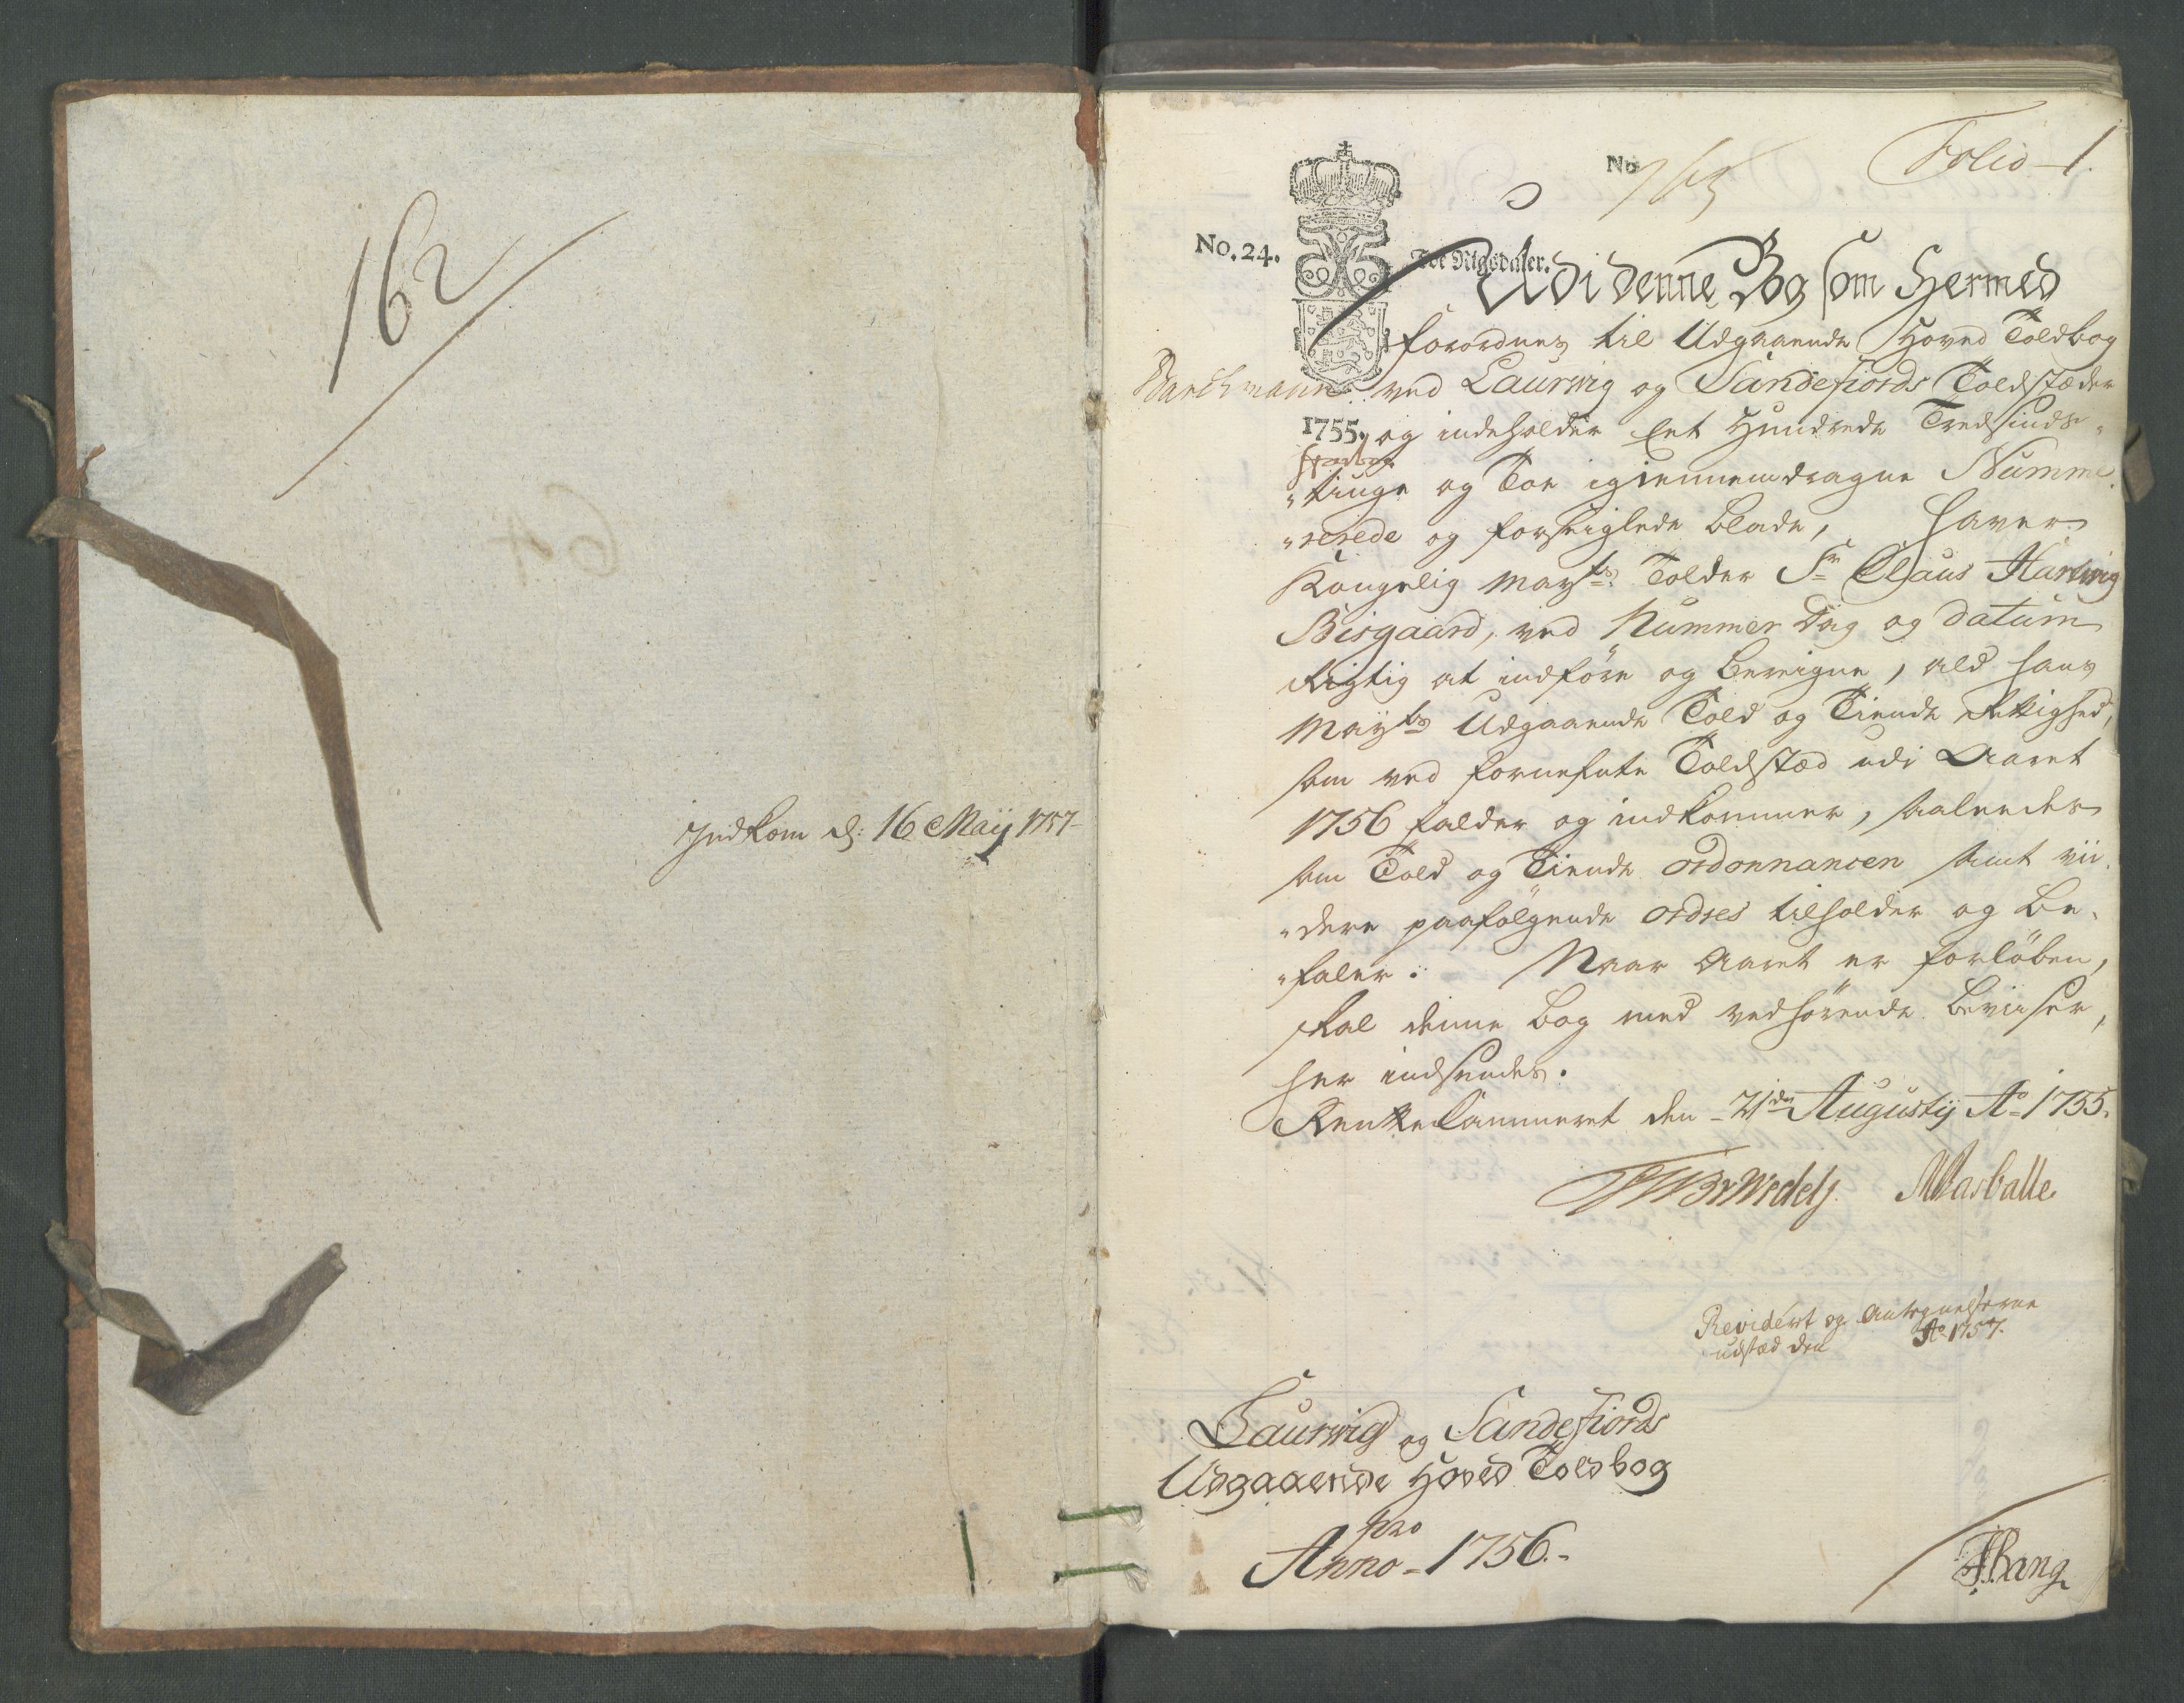 162
64
Indkom d: 16 Maij 1757
No
Folio 1.
No. 24.
Toe Rigsdaler.
Udi denne Bog som Hermed
forordnes til Udgaaende Hoved Toldbog
ved Laurwig og Sandefiords Toldstæder
1755.
og indeholder Eet Hundrede Tredsinds„
„tiuge og Toe igiennemdragne Numme„
„rerede og forseiglede blade, haver
Kongelig Mayts: Tolder Sr Claus Hartwig
Bisgaard, ved Nummer Dag og datum
Rigtig at indføre og bereigne, ald hans
Mayts Udgaaende Told og Tiende Rettighed,
som ved fornefnte Toldstæd udi Aaret
1756 falder og indkommer, saaleedes
som Told og Tiende ordonnancen samt vii„
„dere paafølgende ordres tilholder og be„
„faler. Naar Aaret er forløben,
skal denne bog med vedhørende beviiser,
her indsendes.
Rentekammeret den 21de Augustij Ao 1755.
Revidert og Antegnelserne
udstæd den Ao 1757.
Laurwig og Sandefiords
Udgaaende Hoved Toldbog
pro
Anno 1756.